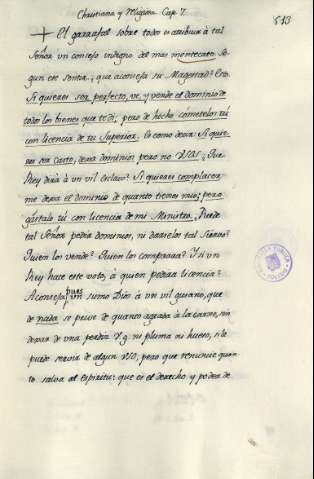 Christiana y Religiosa Cap. 7.
513
+ El garrafal sobre todo es atribuir à tal
Señor un consejo indigno del mas montecato. Se-
gun ese sentir, que aconseja su Magestad? Esto.
Si quieres ser perfecto, ve, y vende el dominio de
todo los bienes que te di; pero de hecho comételos tú
con licencia de tu Superior. Es como decir: Si quie-
res ser casto, dexa dominio pero no USOS. Que
Rey diria à un vil esclavo? Si quieres complacer-
me dexa el dominio de quanto tienes mio; pero
gástalo tú con licencia de mi Ministro. Puede
tal Señor pedir dominios, ni darselos tal Siervo?
Quien los vende? Quien los compraria? Y si un
Rey hace este voto, à quien pedira licencia?
Aconseja pues un sumo Dios à un vil gusano, que
de nada se prive de quanto agrada à la carne, sin
dexar de una perdiz V.g. ni pluma ni hueso, si le
puede servir de algun USO; pero que renuncie quan-
to salva al Espiritu: que es el derecho y poder de